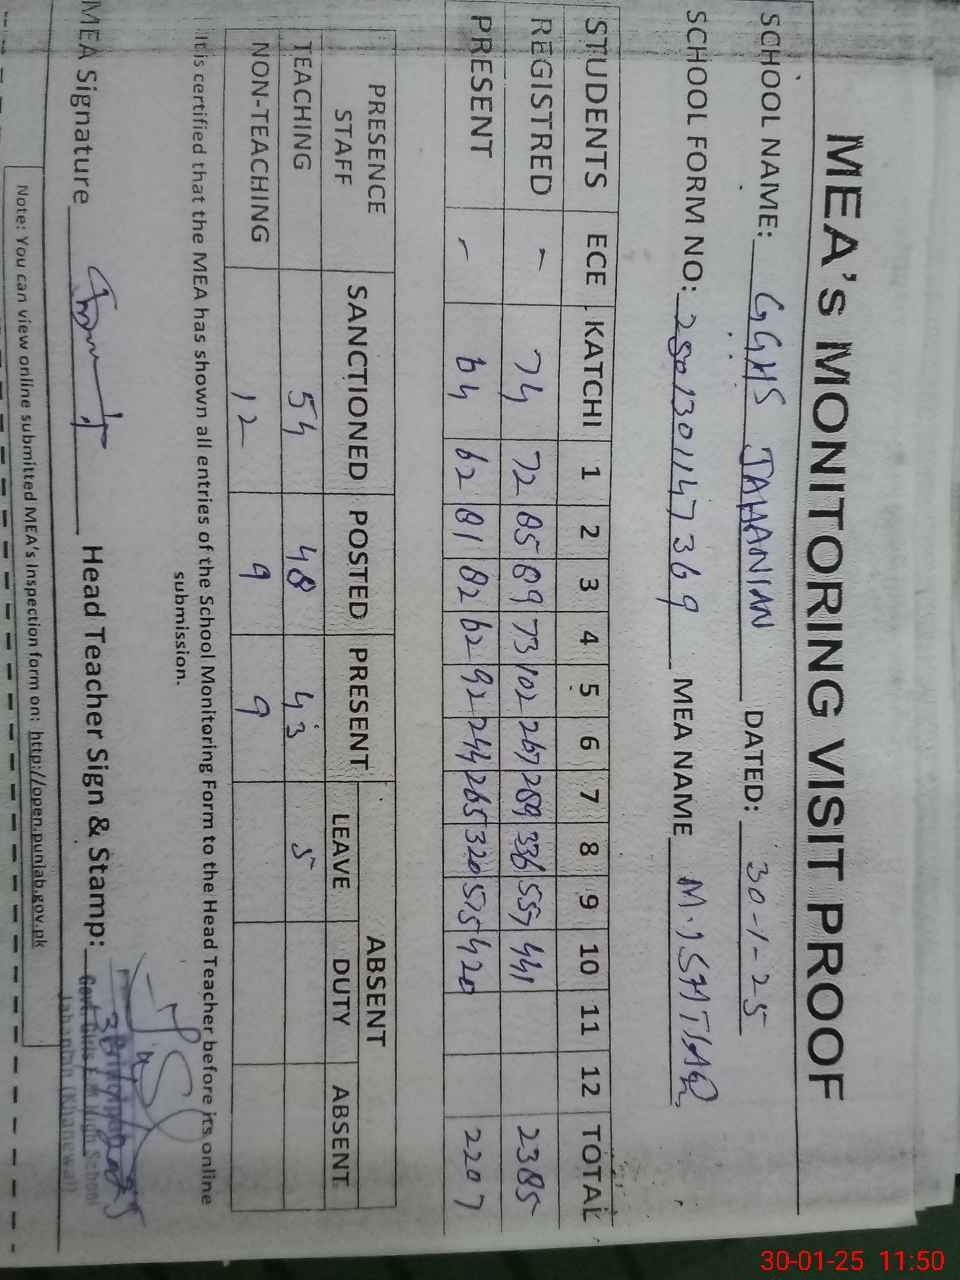 MEA'S MONITORING VISIT PROOF
SCHOOL NAME: GGHS JAHANIAN DATED: 30-1-25
SCHOOL FORM NO: 2501301147369 MEA NAME M. ISHTIAQ
STUDENTS ECE KATCHI 1 2 3 4 5 6 7 8 9 10 11 12 TOTAL
REGISTRED - 74 72 85 89 73 102 267 289 336 557 441 2385
PRESENT - 64 62 81 82 62 92 244 265 320 515 420 2207
PRESENCE STAFF SANCTIONED POSTED PRESENT ABSENT
LEAVE DUTY ABSENT
TEACHING 54 48 43 5
NON-TEACHING 12 9 9
It is certified that the MEA has shown all entries of the School Monitoring Form to the Head Teacher before its online
submission.
MEA Signature Head Teacher Sign & Stamp:
Govt. Girls High School
Jahanian (Khanewal)
Note: You can view online submitted MEA's Inspection form on: http://open.punjab.gov.pk
30-01-25 11:50